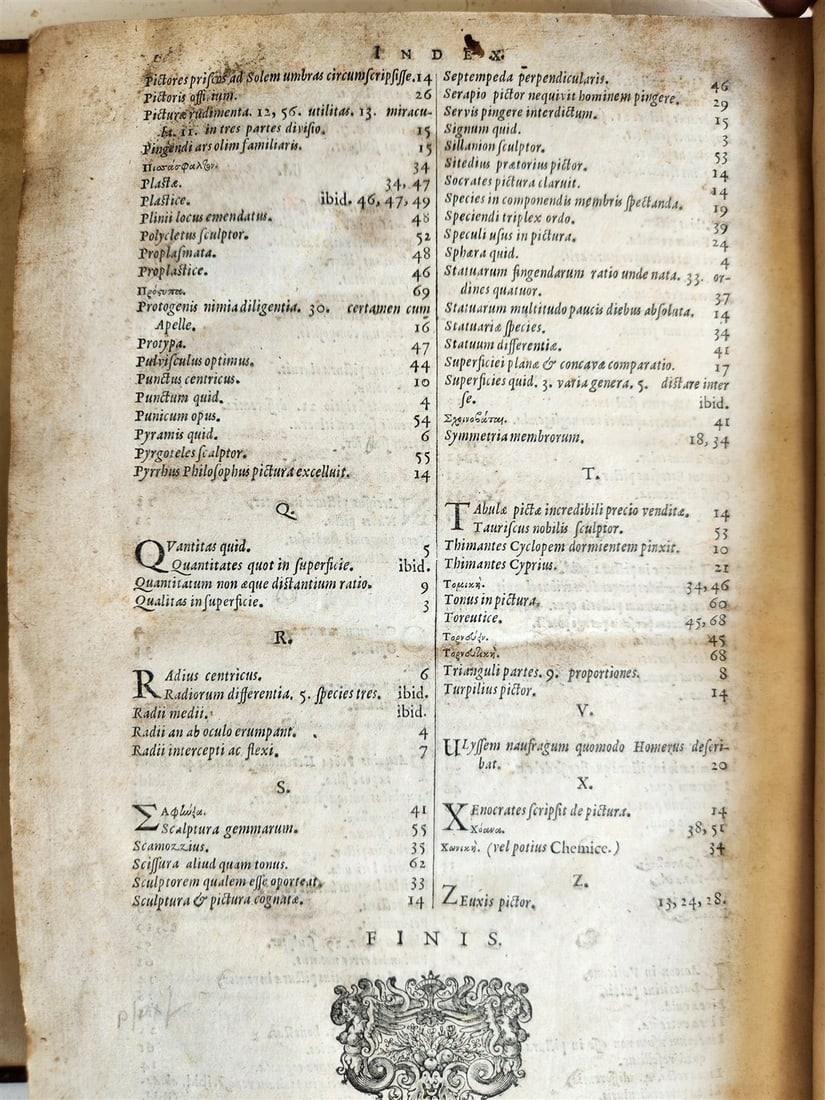 INDEX
Pictores priscos ad Solem umbras circumscripsisse. 14
Pictoris officium. 26
Picturæ rudimenta. 12, 56. utilitas. 13. miracu-
la. 11. in tres partes divisio. 15
Pingendi ars olim familiaris. 15
34
Plastæ. 34, 47
Plastice. ibid. 46, 47, 49
Plinii locus emendatus. 48
Polycletus sculptor. 52
Proplasmata. 48
Proplastice. 46
69
Protogenis nimia diligentia. 30. certamen cum
Apelle. 16
Protypa. 47
Pulvisculus optimus. 44
Punctus centricus. 10
Punctum quid. 4
Punicum opus. 54
Pyramis quid. 6
Pyrgoteles sculptor. 55
Pyrrhus Philosophus pictura excelluit. 14
Q.
QVantitas quid. 5
Quantitates quot in superficie. ibid.
Quantitatum non æque distantium ratio. 9
Qualitas in superficie. 3
R.
RAdius centricus. 6
Radiorum differentia. 5. species tres. ibid.
Radii medii. ibid.
Radii an ab oculo erumpant. 4
Radii intercepti ac flexi. 7
S.
41
Sculptura gemmarum. 55
Scamozzius. 35
Scissura aliud quam tonus. 62
Sculptorem qualem esse oporteat. 33
Sculptura & pictura cognatæ. 14
Septempeda perpendicularis. 46
Serapio pictor nequivit hominem pingere. 29
Servis pingere interdictum. 15
Signum quid. 3
Sillanion sculptor. 53
Sitedius prætorius pictor. 14
Socrates pictura claruit. 14
Species in componendis membris spectanda. 19
Speciendi triplex ordo. 39
Speculi usus in pictura. 24
Sphæra quid. 4
Statuarum fingendarum ratio unde nata. 33. or-
dines quatuor. 37
Statuarum multitudo paucis diebus absoluta. 14
Statuariæ species. 34
Statuum differentiæ. 41
Superficiei planæ & concavæ comparatio. 17
Superficies quid. 3. varia genera. 5. distare inter
se. ibid.
41
Symmetria membrorum. 18, 34
T.
TAbulæ pictæ incredibili precio venditæ. 14
Tauriscus nobilis sculptor. 53
Thimantes Cyclopem dormientem pinxit. 10
Thimantes Cyprius. 21
Τομικὴ. 34, 46
Tonus in pictura. 60
Toreutice. 45, 68
45
68
Trianguli partes. 9. proportiones. 8
Turpilius pictor. 14
V.
ULyssem naufragum quomodo Homerus descri-
bat. 20
X.
XEnocrates scripsit de pictura. 14
Χόανα. 38, 51
Χωνικὴ. (vel potius Chemice.) 34
Z.
ZEuxis pictor. 13, 24, 28.
FINIS.